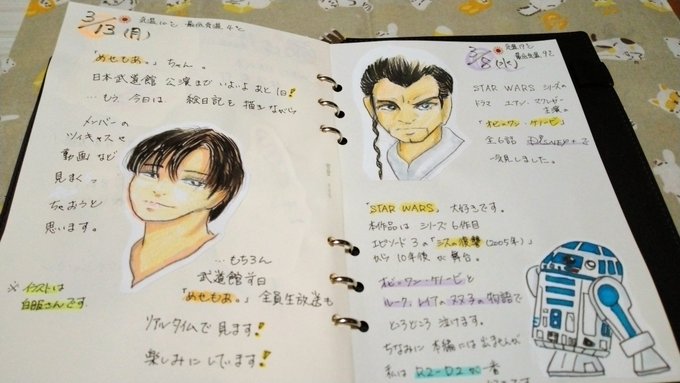 3/13(月) 気温10℃ 最低気温4℃
「めせもあ。」ちゃん。
日本武道館 公演まで いよいよ あと1日!
…もう、今日は 絵日記も 描きながら
メンバーの
ツイキャスや
動画など
見まくっ
ちゃおうと
思います。
…もちろん
武道館前日
「めせもあ。」全員生放送も
リアルタイムで見ます!
楽しみにしています!
※イラストは
白服さんです
3/8(水) 気温19℃ 最低気温9℃
STAR WARS シリーズの
ドラマ ユアン・マクレガー
主演の
「オビ=ワン・ケノービ」
全6話 Disney+で
一気見しました。
「STAR WARS」大好きです。
本作品は シリーズ6作目
エピソード3の「シスの復讐(2005年)」
から10年後が舞台。
オビ=ワン・ケノービと
ルーク、レイアの双子の物語で
ところどころ 泣けます。
ちなみに 本編には出ませんが
私は R2-D2が